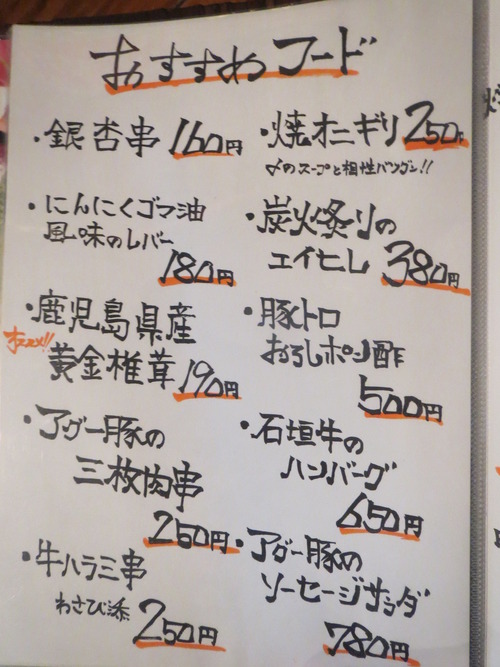 おすすめフード
・銀杏串 160円
・にんにくゴマ油
風味のレバー
180円
・鹿児島県産
オススメ!!
黄金椎茸 190円
・アグー豚の
三枚肉串
250円
・牛ハラミ串
わさび添 250円
・焼オニギリ 250円
〆のスープと相性バツグン!!
・炭火炙りの
エイヒレ 380円
・豚トロ
おろしポン酢
500円
・石垣牛の
ハンバーグ
650円
・アグー豚の
ソーセージサラダ
780円